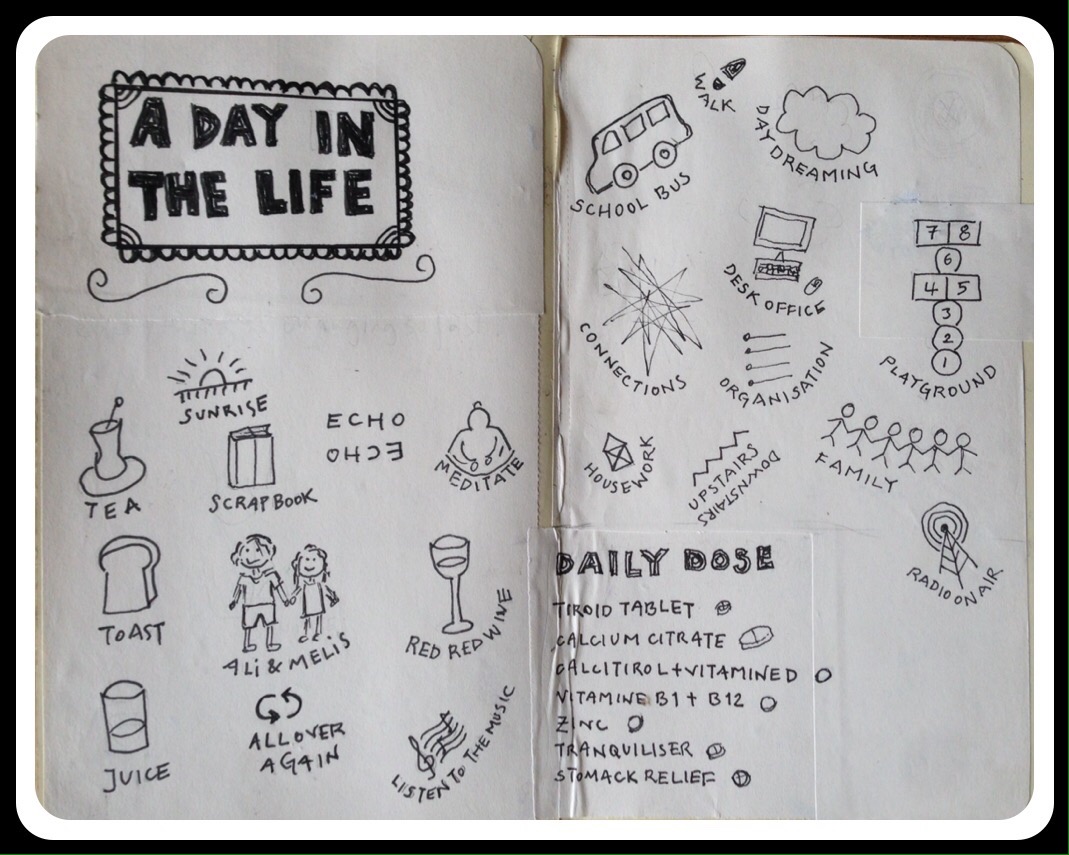 A DAY IN
THE LIFE
SUNRISE
TEA
SCRAPBOOK
ECHO
ECHO
MEDITATE
TOAST
ALİ & MELİS
RED RED WINE
JUICE
ALL OVER
AGAIN
LISTEN TO THE MUSIC
WALK
SCHOOL BUS
DAYDREAMING
DESK OFFICE
CONNECTIONS
ORGANISATION
7 8
6
4 5
3
2
1
PLAYGROUND
HOUSEWORK
UPSTAIRS
DOWNSTAIRS
FAMILY
RADIO ON AIR
DAILY DOSE
TIROID TABLET
CALCIUM CITRATE
CALCITIROL+VITAMINE D
VITAMINE B1 + B12
ZINC
TRANQUILISER
STOMACK RELIEF